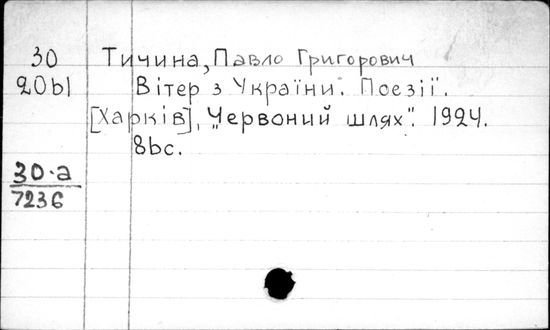 30 Тичина, Павло Григорович
20Ы Вітер з України. Поезії.
[Харків], "Червоний шлях". 1924.
8bc.
30-а
7236